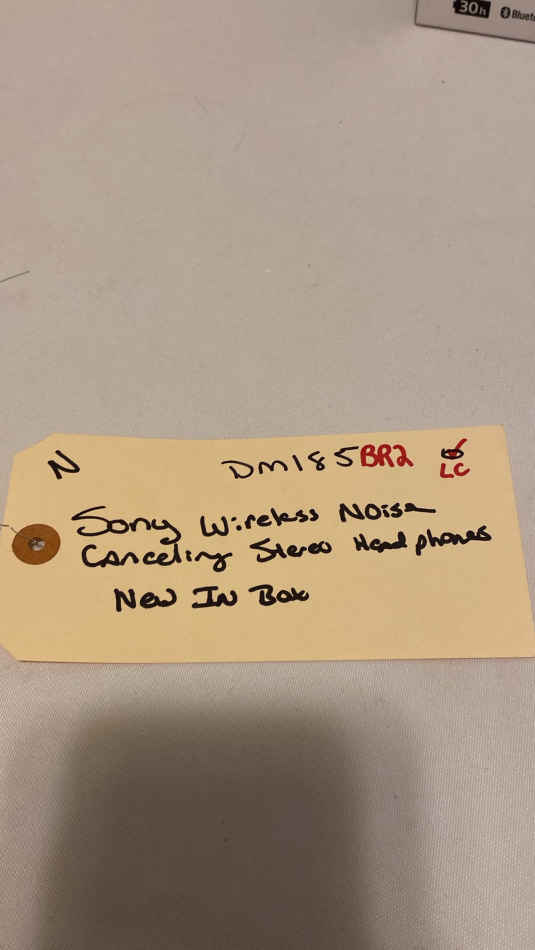 30h Bluet
N DM185BR2
LC
Sony Wireless Noise
Canceling Stereo Headphones
New In Box